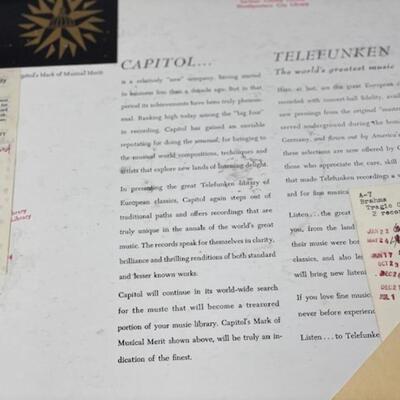 Montgomery City Library
apitol's Mark of Musical Merit
CAPITOL...
is a relatively "new" company, having started
in business less than a decade ago. But in that
period its achievements have been truly phenom-
enal. Ranking high today among the "big four"
in recording, Capitol has gained an enviable
reputation for doing the unusual; for bringing to
the musical world compositions, techniques and
artists that explore new lands of listening delight.
In presenting the great Telefunken library of
European classics, Capitol again steps out of
traditional paths and offers recordings that are
truly unique in the annals of the world's great
music. The records speak for themselves in clarity,
brilliance and thrilling renditions of both standard
and lesser known works.
Capitol will continue in its world-wide search
for the music that will become a treasured
portion of your music library. Capitol's Mark of
Musical Merit shown above, will be truly an in-
dication of the finest.
TELEFUNKEN
The world's greatest music
Here, at last, are the great European
recorded with concert-hall fidelity, avail
new pressings from the original "master
served underground during the war
Germany, and flown out by America's
these selections are now offered by C
those who appreciate the care, skill
that made Telefunken recordings a w
ard for fine musi
Listen...the great
you, from the land
their music were bo
classics, and also le
will bring new listeni
If you love fine music
never before experien
Listen...to Telefunke
A-7
Brahms
Tragic O
2 reco
JAN 22
MAY 24
JAN 17
OCT 23
DEC 2
DEC 21
JUL 1